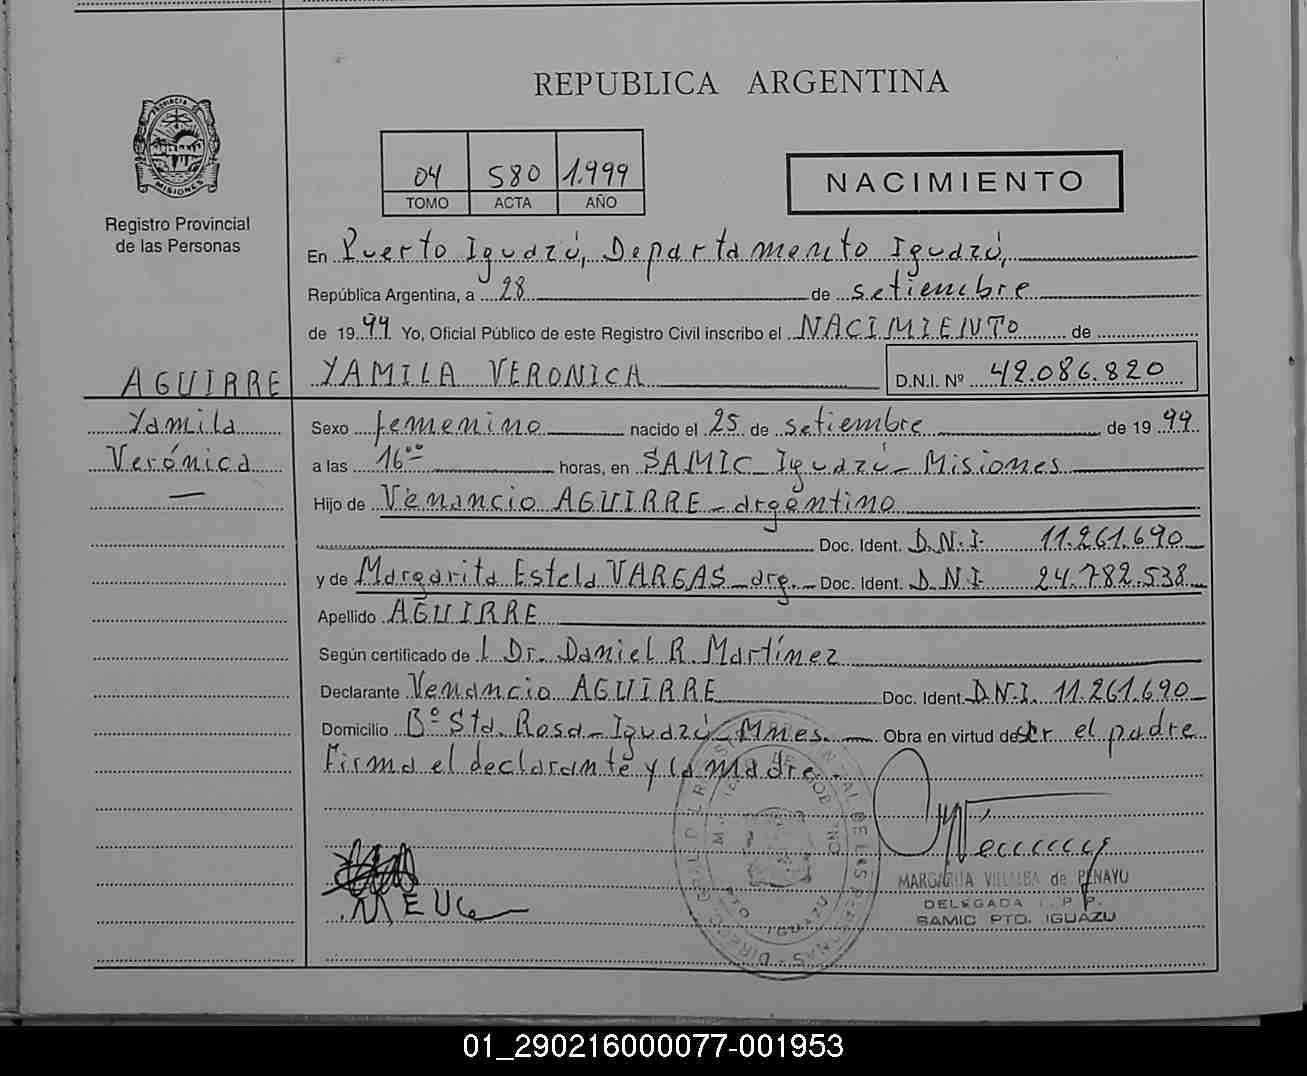 REPUBLICA ARGENTINA
PROVINCIA DE
MISIONES
Registro Provincial
de las Personas
04 580 1.999
TOMO ACTA AÑO
NACIMIENTO
En Puerto Iguazú, Departamento Iguazú,
República Argentina, a 28 de setiembre
de 1999 Yo, Oficial Público de este Registro Civil inscribo el NACIMIENTO de
AGUIRRE YAMILA VERONICA D.N.I. Nº 42.086.820
Yamila Sexo femenino nacido el 25 de setiembre de 1999
Verónica a las 16ºº horas, en SAMIC Iguazú - Misiones
Hijo de Venancio AGUIRRE - argentino
Doc. Ident. D.N.I. 11.261.690
y de Margarita Estela VARGAS - arg. - Doc. Ident. D.N.I 24.782.538
Apellido AGUIRRE
Según certificado de l Dr. Daniel R. Martínez
Declarante Venancio AGUIRRE Doc. Ident. D.N.I. 11.261.690
Domicilio Bº Sta. Rosa - Iguazú - Mnes. Obra en virtud de ser el padre
Firma el declarante y la madre.
MARGARITA VILLALBA de PENAYO
DELEGADA R.P.P.
SAMIC PTO. IGUAZU
PTO IGUAZU
01_290216000077-001953